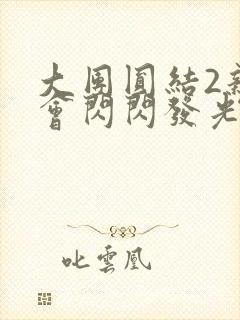 大團圓結2新
會閃閃發光
叱雲凰